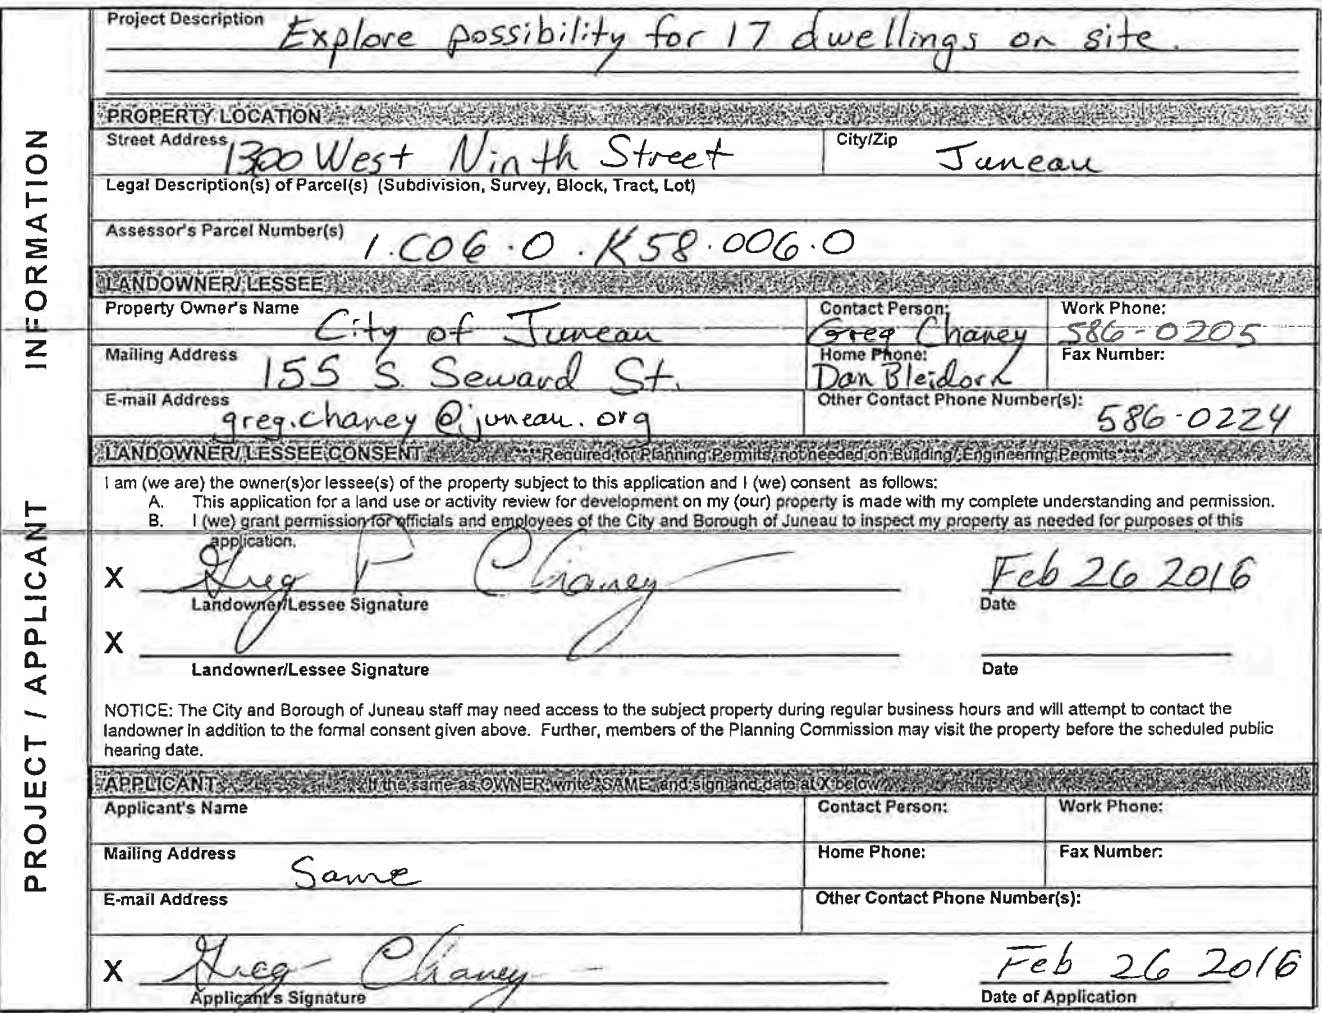 Project Description Explore possibility for 17 dwellings on site.
PROPERTY LOCATION
Street Address 1300 West Ninth Street City/Zip Juneau
Legal Description(s) of Parcel(s) (Subdivision, Survey, Block, Tract, Lot)
Assessor's Parcel Number(s) 1.C06.0.K58.006.0
LANDOWNER/ LESSEE
Property Owner's Name City of Juneau Contact Person: Greg Chaney Work Phone: 586-0205
Mailing Address 155 S. Seward St. Home Phone: Dan Bleidorn Fax Number:
E-mail Address greg.chaney@juneau.org Other Contact Phone Number(s): 586-0224
LANDOWNER/ LESSEE CONSENT ****Required for Planning Permits, not needed on Building/ Engineering Permits****
I am (we are) the owner(s)or lessee(s) of the property subject to this application and I (we) consent as follows:
A. This application for a land use or activity review for development on my (our) property is made with my complete understanding and permission.
B. I (we) grant permission for officials and employees of the City and Borough of Juneau to inspect my property as needed for purposes of this
application.
X Greg P Chaney Feb 26 2016
Landowner/Lessee Signature Date
X
Landowner/Lessee Signature Date
NOTICE: The City and Borough of Juneau staff may need access to the subject property during regular business hours and will attempt to contact the
landowner in addition to the formal consent given above. Further, members of the Planning Commission may visit the property before the scheduled public
hearing date.
APPLICANT If the same as OWNER, write "SAME" and sign and date at X below
Applicant's Name Contact Person: Work Phone:
Mailing Address Same Home Phone: Fax Number:
E-mail Address Other Contact Phone Number(s):
X Greg Chaney Feb 26 2016
Applicant's Signature Date of Application
PROJECT / APPLICANT INFORMATION